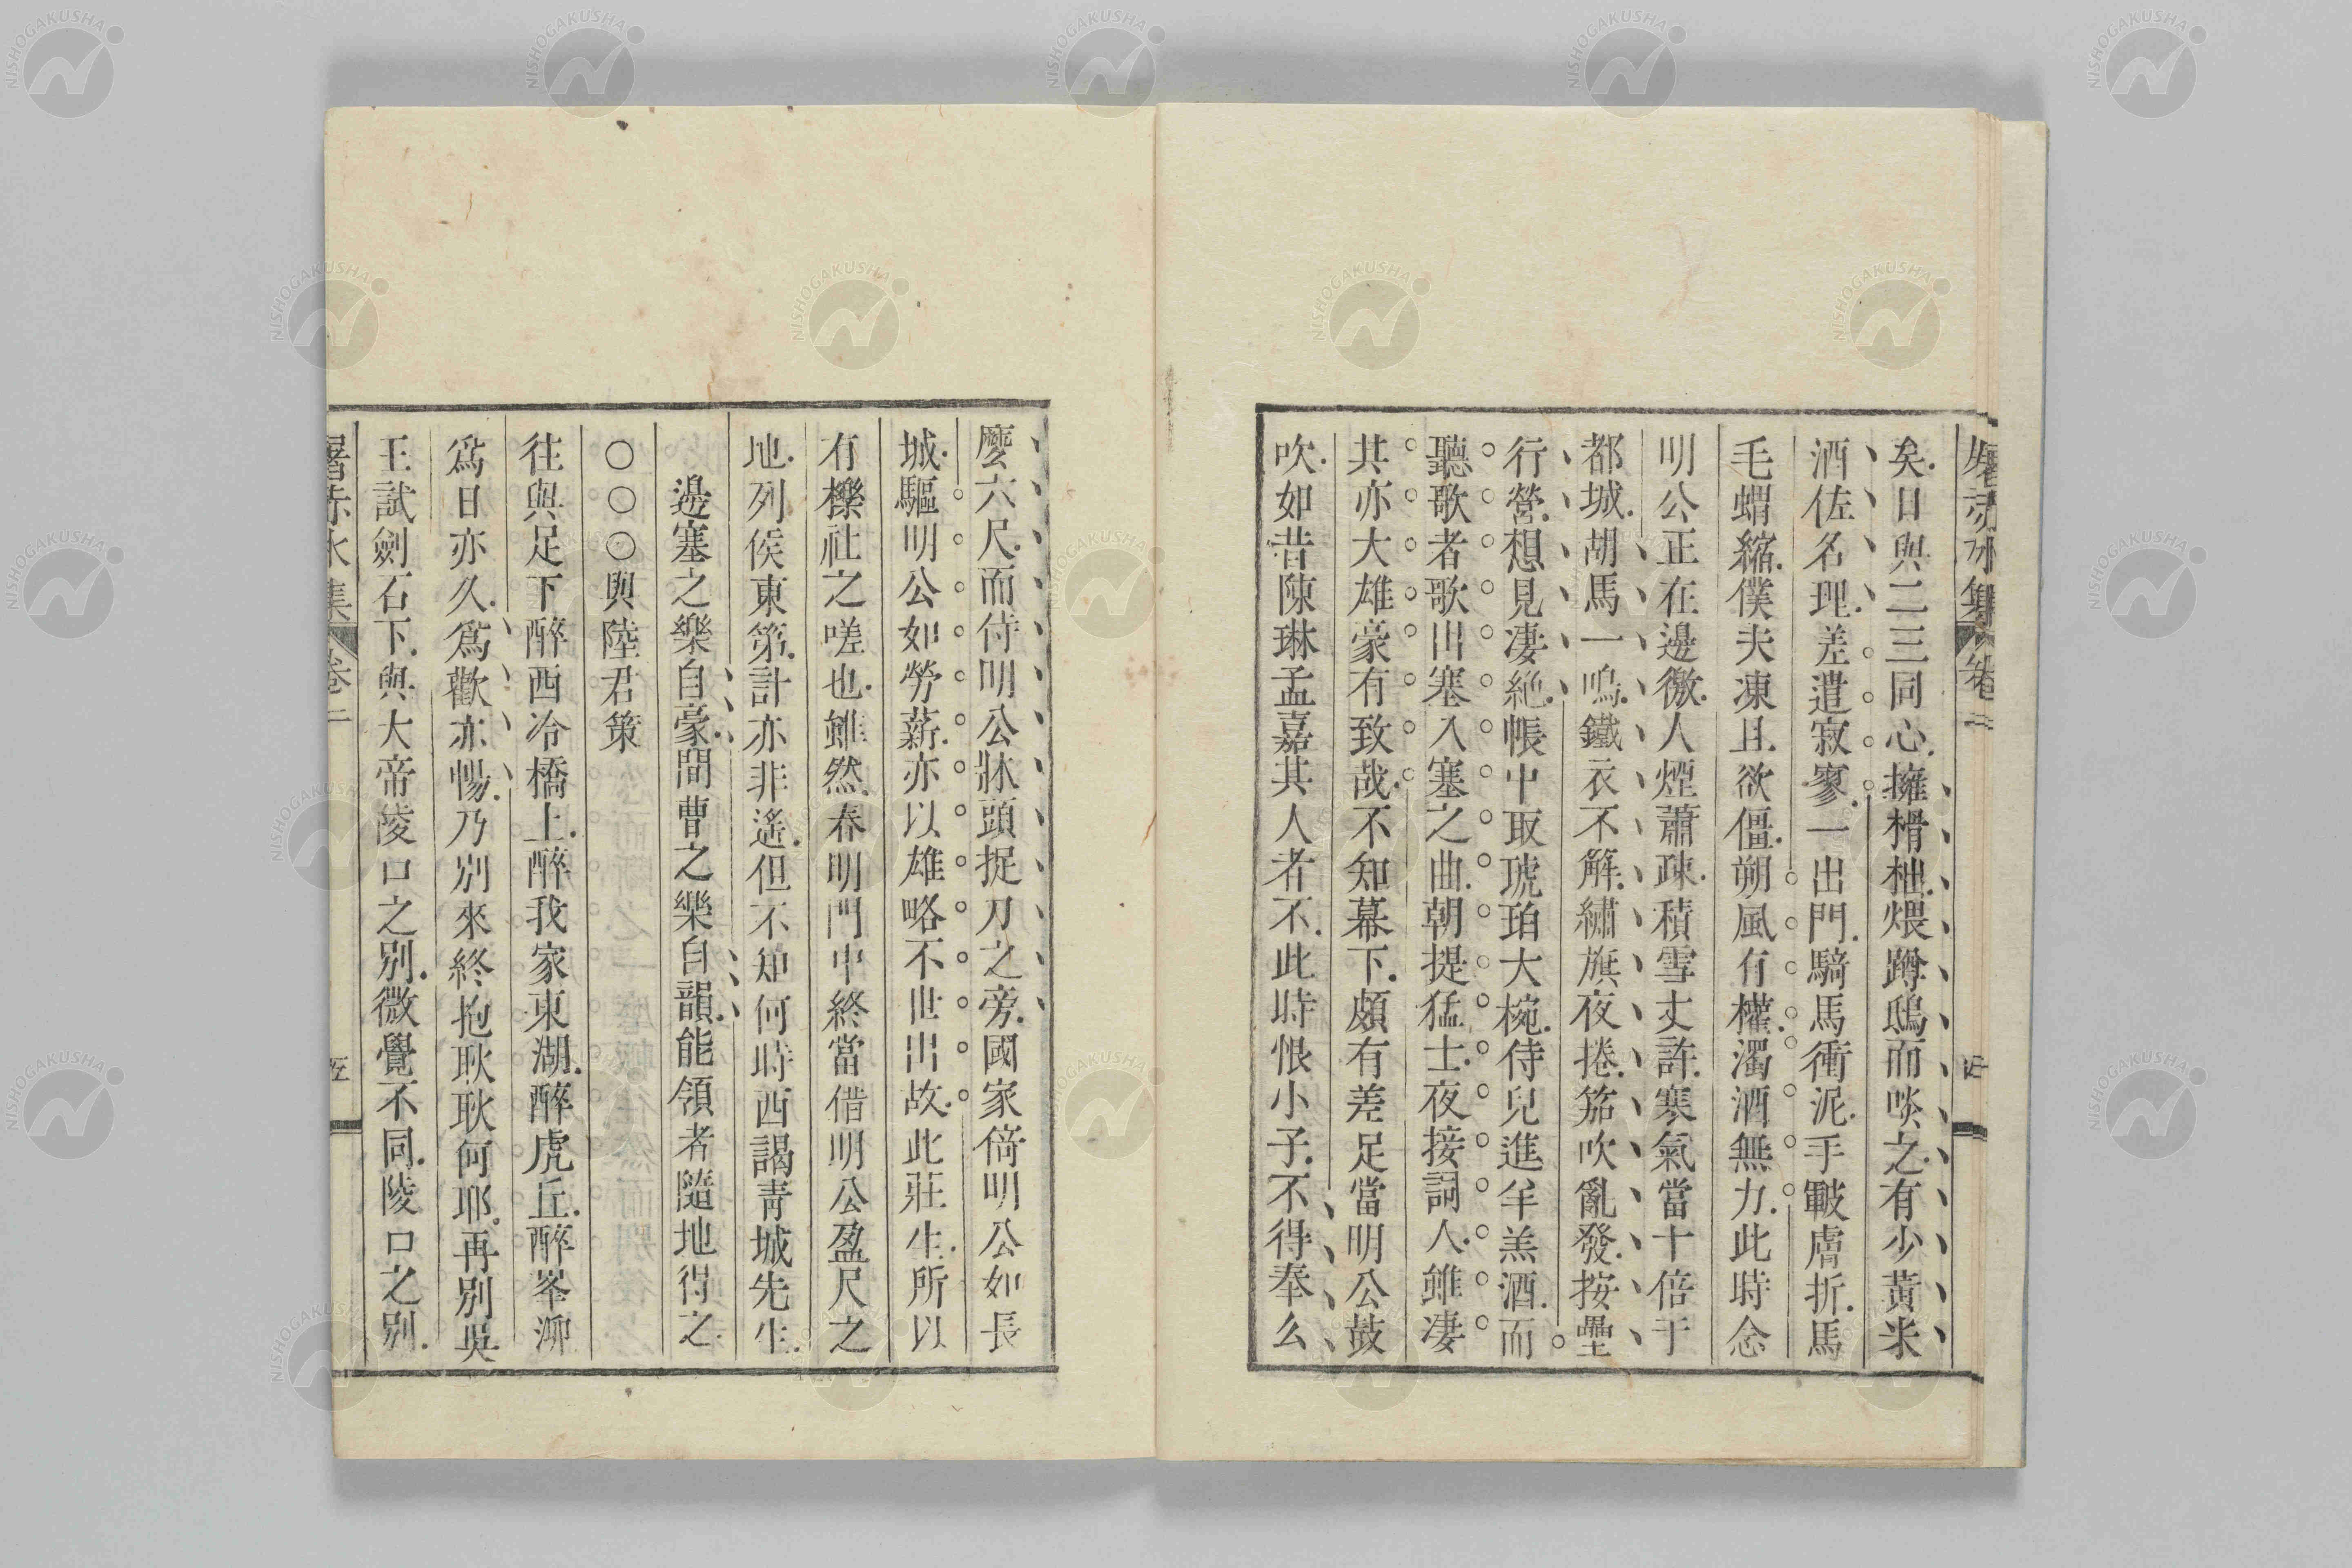 屠赤水集 卷二
矣日與二三同心擁榾柮煨蹲鴟而啖之有少黃米
酒佐名理差遣寂寥一出門騎馬衝泥手皸膚折馬
毛蝟縮僕夫凍且欲僵朔風有權濁酒無力此時念
明公正在邊徼人煙蕭疎積雪丈許寒氣當十倍于
都城胡馬一鳴鐵衣不解繡旗夜捲笳吹亂發按壘
行營想見凄絶帳中取琥珀大椀侍兒進羊羔酒而
聽歌者歌出塞入塞之曲朝提猛士夜接詞人雖凄
其亦大雄豪有致哉不知幕下頗有差足當明公鼓
吹如昔陳琳孟嘉其人者不此時恨小子不得奉么
麼六尺而侍明公牀頭捉刀之旁國家倚明公如長
城驅明公如勞薪亦以雄略不世出故此莊生所以
有櫟社之嗟也雖然春明門中終當借明公盈尺之
地列侯東第計亦非遙但不知何時西謁青城先生
邊塞之樂自豪間曹之樂自韻能領者隨地得之
○○○與陸君策
往與足下醉西冷橋上醉我家東湖醉虎丘醉峯泖
爲日亦久爲歡亦暢乃別來終抱耿耿何耶再別吳
王試劍石下與大帝陵口之別微覺不同陵口之別
屠赤水集 卷二 五
NISHOGAKUSHA